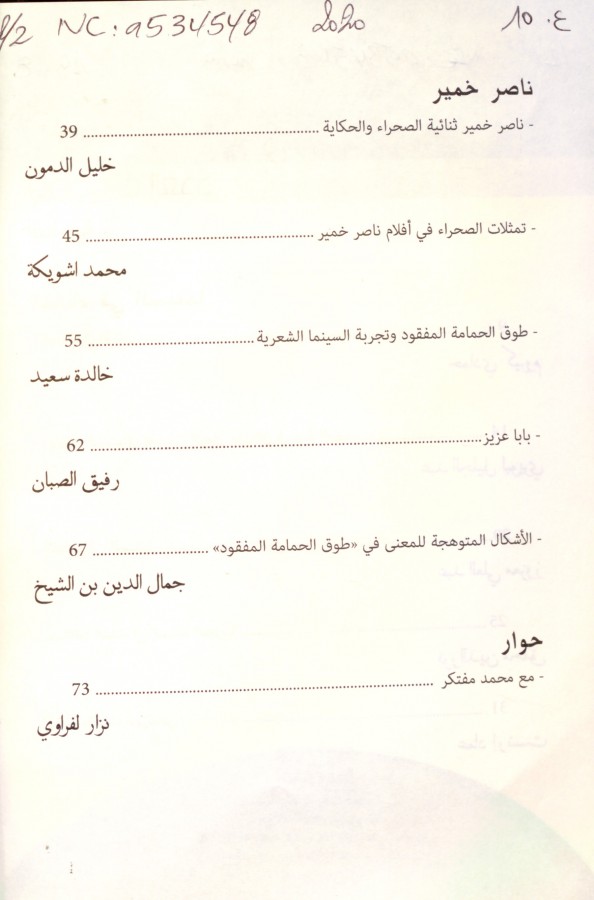 NC: a534548 2020 ع. 10
ناصر خمير
- ناصر خمير ثنائية الصحراء والحكاية ........................................................ 39
خليل الدمون
- تمثلات الصحراء في أفلام ناصر خمير ...................................................... 45
محمد اشويكة
- طوق الحمامة المفقود وتجربة السينما الشعرية ........................................ 55
خالدة سعيد
- بابا عزيز .................................................................................... 62
رفيق الصبان
- الأشكال المتوهجة للمعنى في «طوق الحمامة المفقود» ............................ 67
جمال الدين بن الشيخ
حوار
- مع محمد مفتكر ............................................................................ 73
نزار لفراوي